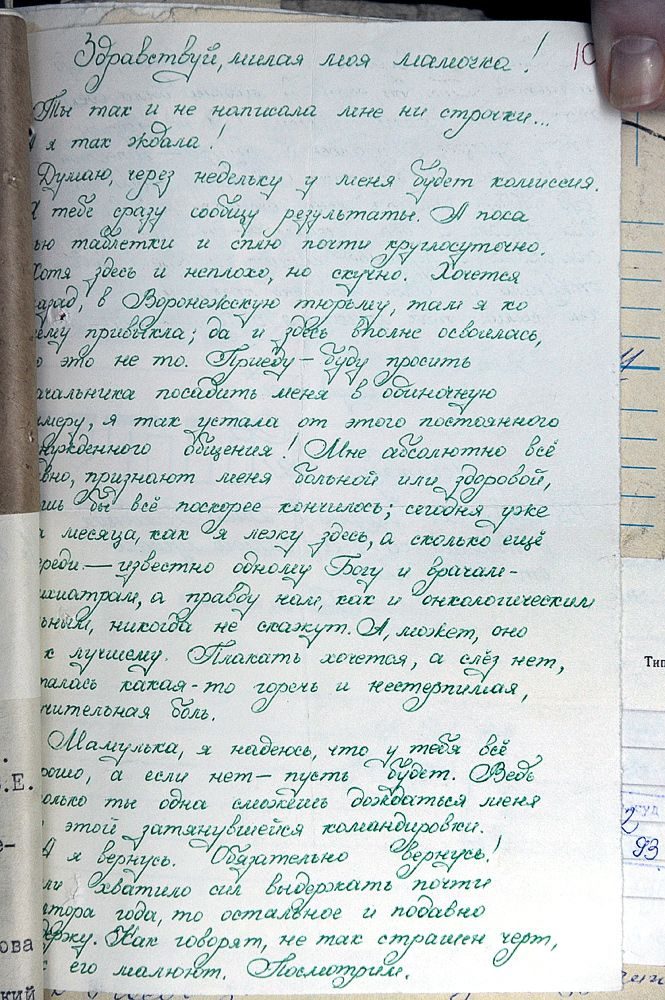 Здравствуй, милая моя мамочка!
10
Ты так и не написала мне ни строчки...
я так ждала!
Думаю, через недельку у меня будет комиссия.
Я тебе сразу сообщу результаты. А пока
ью таблетки и сплю почти круглосуточно.
Хотя здесь и неплохо, но скучно. Хочется
азад, в Воронежскую тюрьму, там я ко
ему привыкла; да и здесь вполне освоилась,
о это не то. Приеду — буду просить
ачальника посадить меня в одиночную
меру, я так устала от этого постоянного
нужденного общения! Мне абсолютно всё
авно, признают меня больной или здоровой,
ишь бы всё поскорее кончилось; сегодня уже
а месяца, как я лежу здесь, а сколько ещё
ереди — известно одному Богу и врачам-
ихиатрам, а правду нам, как и онкологическим
ьным, никогда не скажут. А, может, оно
к лучшему. Плакать хочется, а слёз нет,
талась какая-то горечь и нестерпимая,
чительная боль.
Мамулька, я надеюсь, что у тебя всё
рошо, а если нет — пусть будет. Ведь
олько ты одна сможешь дождаться меня
этой затянувшейся командировки.
А я вернусь. Обязательно вернусь!
ли хватило сил выдержать почти
лтора года, то остальное и подавно
держу. Как говорят, не так страшен черт,
к его малюют. Посмотрим.
.Е.
е-
ова
кий
Тип
суд
2
93